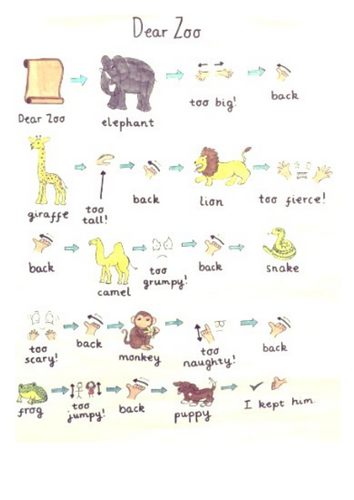 Dear Zoo
Dear Zoo
elephant
too big!
back
giraffe
too
tall!
back
lion
too fierce!
back
camel
too
grumpy!
back
snake
too
scary!
back
monkey
too
naughty!
back
frog
too
jumpy!
back
puppy
I kept him